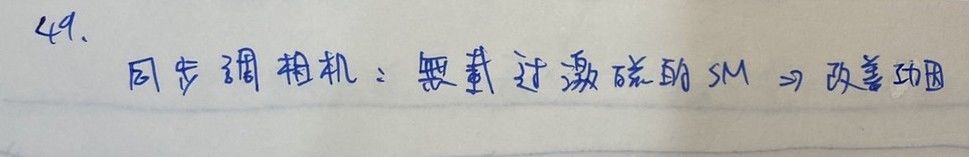 49.
同步調相机：無載过激磁的SM ⇒ 改善功因